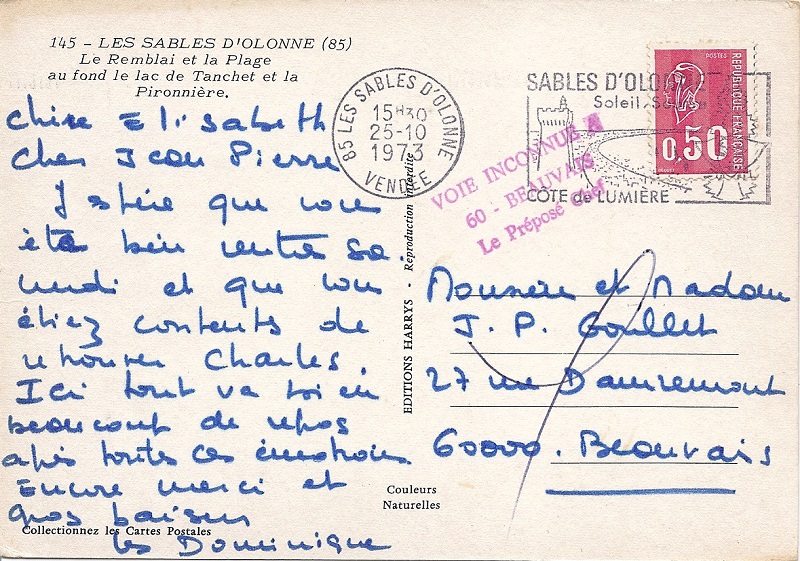 145 – LES SABLES D'OLONNE (85)
Le Remblai et la Plage
au fond le lac de Tanchet et la
Pironnière.
Chère Elisabeth
Cher Jean Pierre
J'espère que vous
êtes bien rentrés sa.
medi et que vous
étiez contents de
retrouver Charles.
Ici tout va bien
beaucoup de repos
après toutes ces émotions
Encore merci et
gros baisers
les Dominique
Collectionnez les Cartes Postales
85 LES SABLES D'OLONNE
15H30
25-10
1973
VENDÉE
EDITIONS HARRYS - Reproduction interdite
Couleurs
Naturelles
VOIE INCONNUE A
60 - BEAUVAIS
Le Préposé Chef
SABLES D'OLONNE
Soleil
CÔTE de LUMIÈRE
POSTES
REPUBLIQUE FRANÇAISE
0,50
Monsieur et Madame
J. P. Goullet
27 rue Damremont
60000. Beauvais